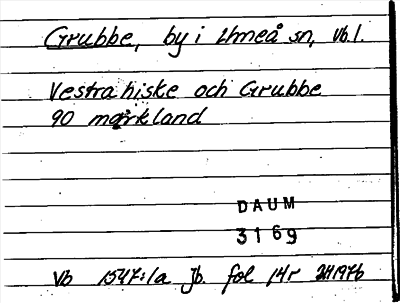 Grubbe, by i Umeå sn, Vb.l.
Vestra hiske och Grubbe
90 markland
DAUM
3169
Vb 1547:1a Jb. fol 14r